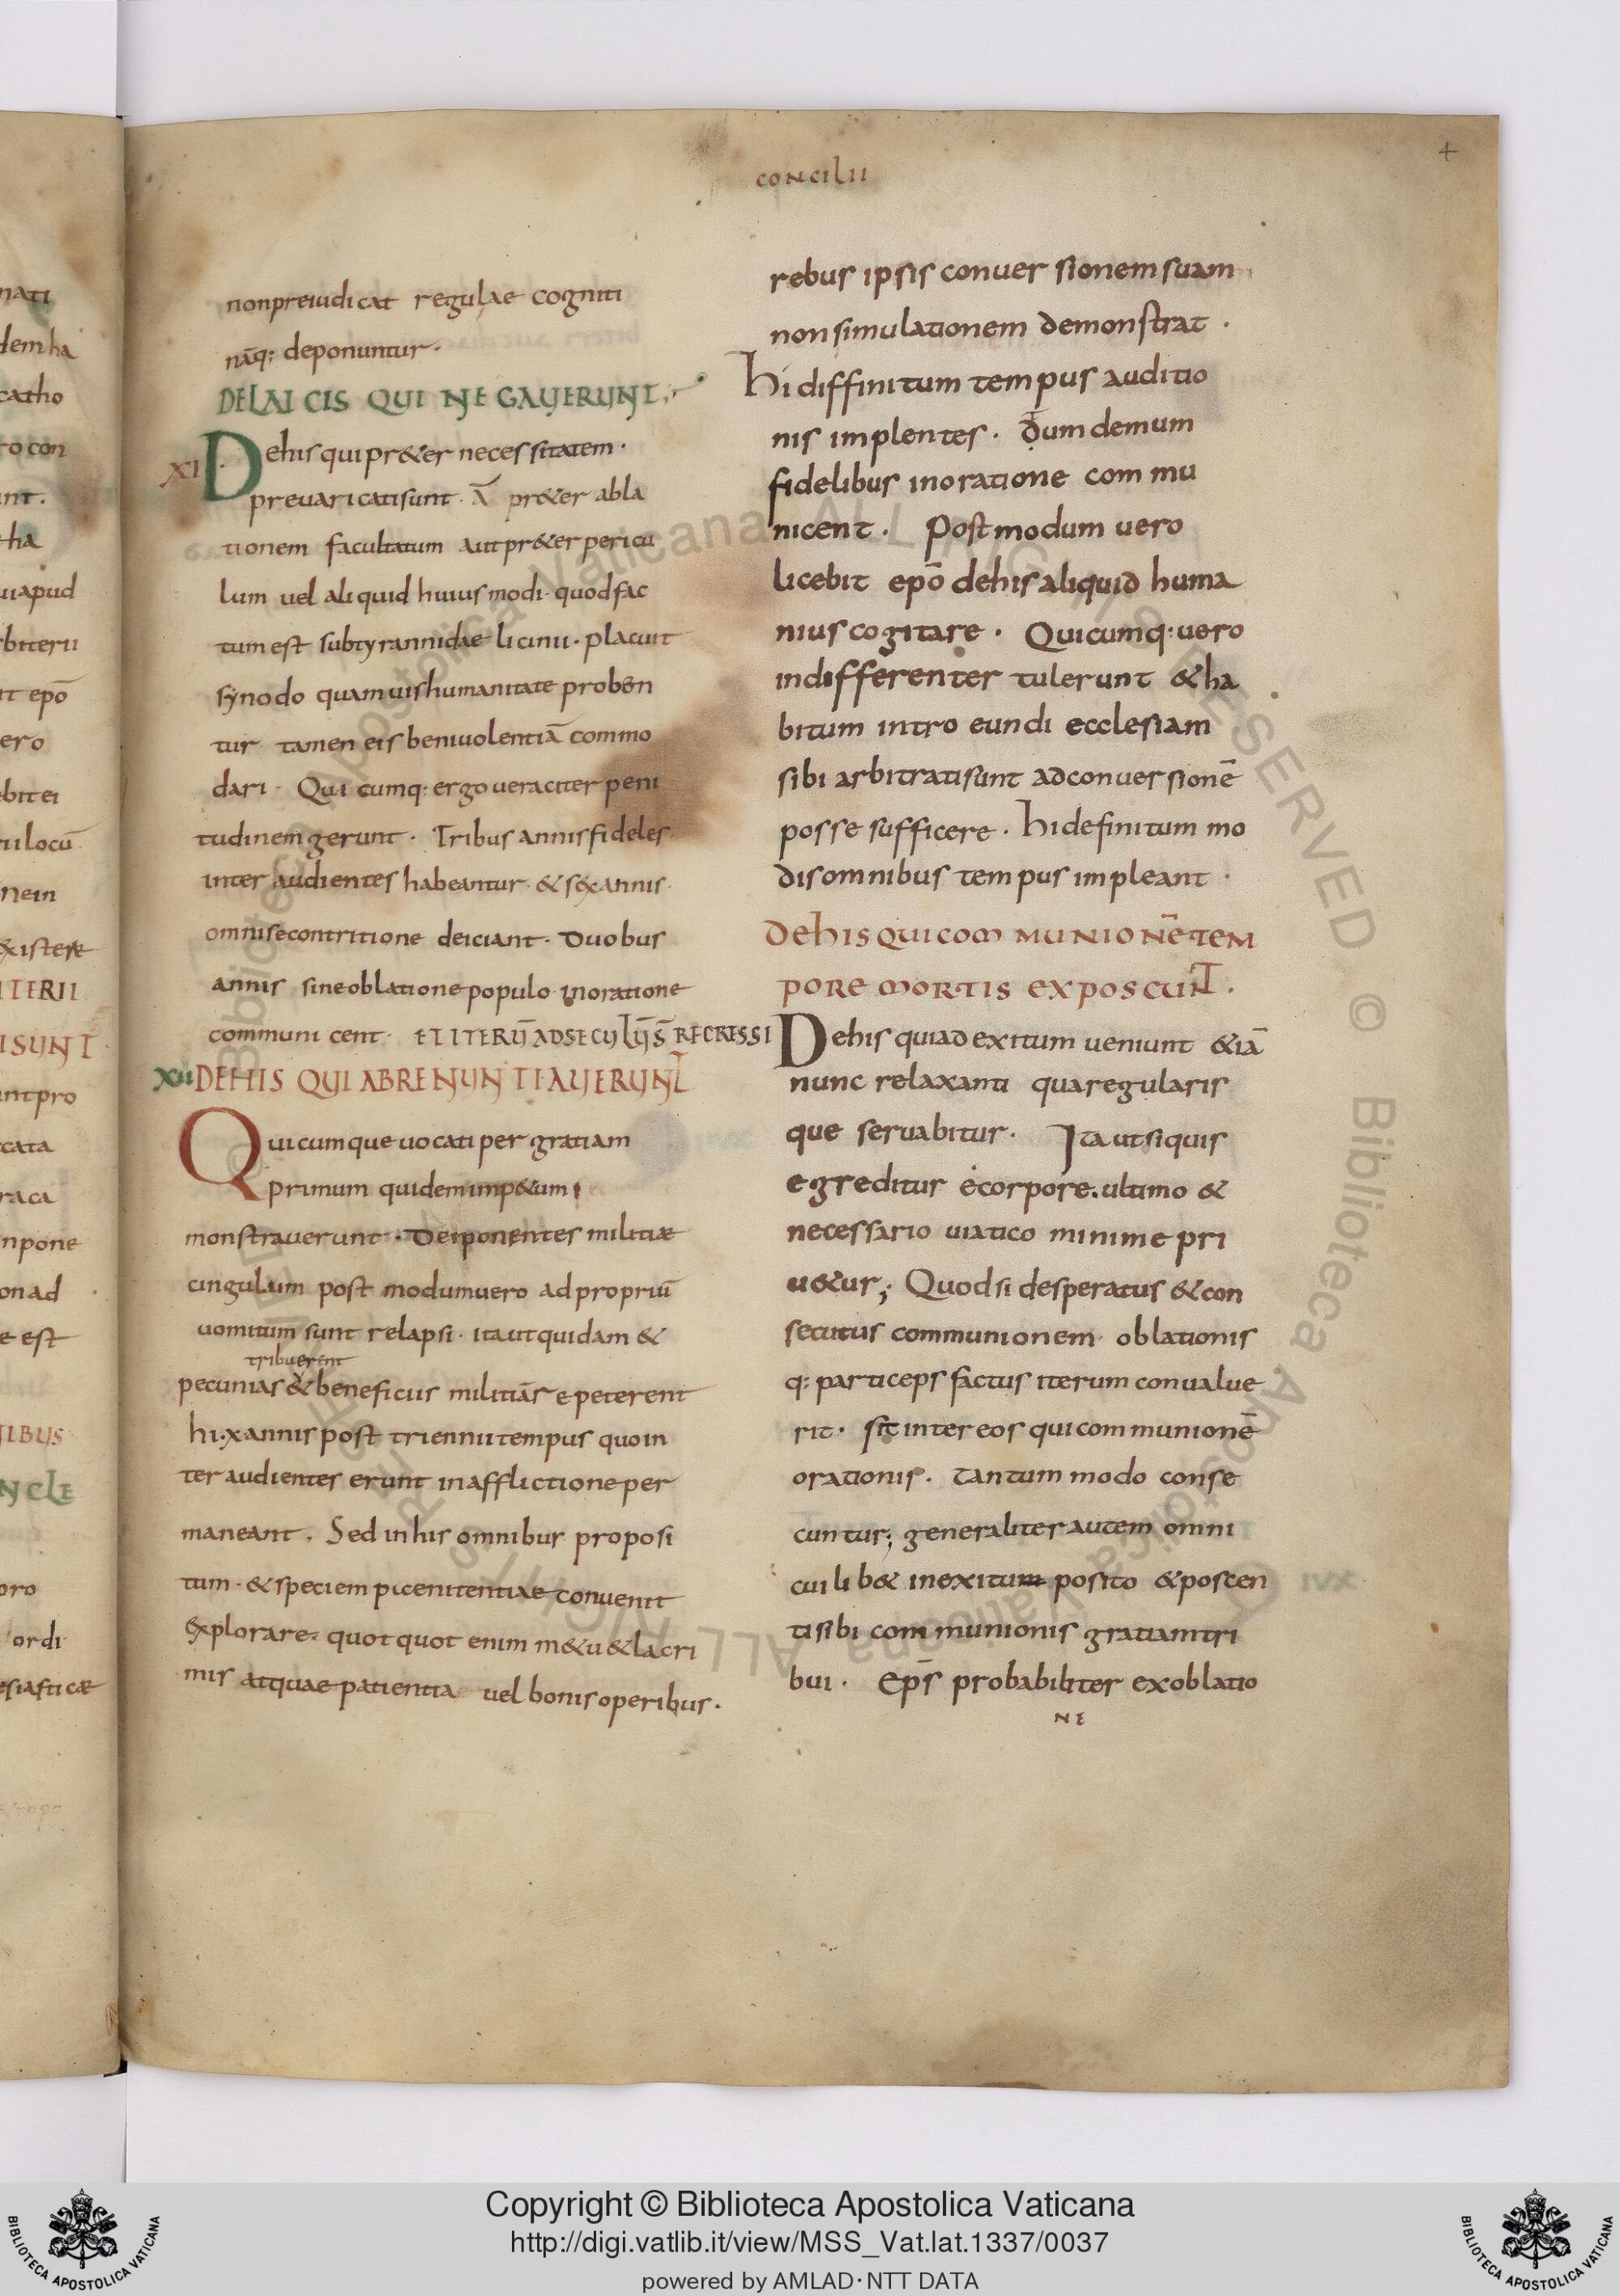 concilii
4
nonpreiudicat regulae cogniti
nāq; deponuntur.
DELAICIS QUI NEGAUERUNT.
XI Dehis qui pr&er necessitatem.
preuaricatisunt. ā pr&er abla
tionem facultatum aut pr&er pericu
lum uel aliquid huius modi. quod fac
tum est subtyrannidae licinii. placuit
synodo quamuis humanitate proben
tur tamen eis beniuolentiā commo
dari. Quicumq: ergo ueraciter peni
tudinem gerunt. Tribus annis fideles
inter audientes habeantur. & sex annis.
omni se contritione deiciant. Duobus
annis sine oblatione populo in oratione
communicent. ET ITERŪ AD SECULŪ S̄ REGRESSI
XII DEHIS QUI ABRENUNTIAUERUNT
Quicumque uocati per gratiam
primum quidem imp&um
monstrauerunt. Deiponentes militiæ
cingulum post modum uero ad propriū
uomitum sunt relapsi. ita ut quidam &
tribuerent
pecunias & beneficiis militiā repeterent
hi. x annis post triennii tempus quo in
ter audientes erunt in afflictione per
maneant. Sed in his omnibus proposi
tum. & speciem picenitentiae conuenit
explorare. quot quot enim m&u & lacri
mis atquae patientia uel bonis operibus.
rebus ipsis conuersionem suam
non simulationem demonstrat.
hi diffinitum tempus auditio
nis implentes. dum demum
fidelibus in oratione commu
nicent. Postmodum uero
licebit epō dehis aliquid huma
nius cogitare. Quicumq: uero
indifferenter tulerunt & ha
bitum intro eundi ecclesiam
sibi arbitrati sunt ad conuersionē
posse sufficere. hi definitum mo
dis omnibus tempus impleant.
DEHIS QUI COMMUNIONĒ TEM
PORE MORTIS EXPOSCUNT.
Dehis qui ad exitum ueniunt &iā
nunc relaxanti qua regularis
que seruabitur. Ita ut si quis
egreditur e corpore. ultimo &
necessario uiatico minime pri
u&ur; Quod si desperatus & con
secutus communionem oblationis
q: particeps factus iterum conualue
rit. sit inter eos qui communionē
orationis. tantum modo conse
cuntur; generaliter autem omni
cuilib& in exitum posito & poscen
ti sibi communionis gratiam tri
bui. Eps̄ probabiliter ex oblatio
NE
nati
dem ha
catho
ro con
unt.
ha
uiapud
biterii
it epō
ero
ebitei
ii locū
nein
existere
ITERII
ISUNT
unt pro
cata
raca
npone
on ad
e est
IIBUS
NCLE
oro
ordi
esiasticæ
© Biblioteca Apostolica Vaticana ALL RIGHTS RESERVED
Copyright © Biblioteca Apostolica Vaticana
http://digi.vatlib.it/view/MSS_Vat.lat.1337/0037
powered by AMLAD·NTT DATA
BIBLIOTECA APOSTOLICA VATICANA
BIBLIOTECA APOSTOLICA VATICANA